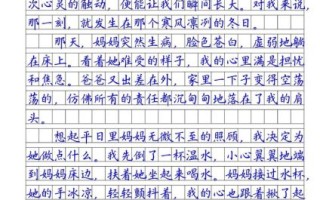 次心灵的触动，便能让我们瞬间长大。对我来说，
那一刻，就发生在那个寒风凛冽的冬日。
那天，妈妈突然生病，脸色苍白，虚弱地躺
在床上。看着她难受的样子，我的心里满是担忧
和焦急。爸爸又出差在外，家里一下子变得空荡
荡的，仿佛所有的责任都沉甸甸地落在了我的肩
头。
想起平日里妈妈无微不至的照顾，我决定为
她做点什么。我先倒了一杯温水，小心翼翼地端
到妈妈床边，扶着她坐起来喝水。妈妈接过水杯，
她的手冰凉，轻轻颤抖着，我的心也跟着揪了起